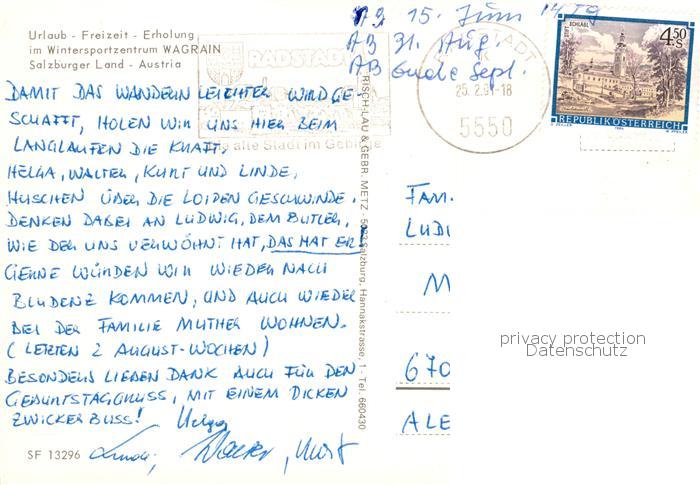 Urlaub - Freizeit - Erholung
im Wintersportzentrum WAGRAIN
Salzburger Land - Austria
AB 15. Juni 14 Tg
AB 31. Aug.
AB Ende Sept.
RADSTADT
alte Stadt im Gebirge
RADSTADT
25. 2. 91-18
5550
STIFT SCHLÄGL
4.50 S
REPUBLIK ÖSTERREICH
DAMIT DAS WANDERN LEICHTER WIRD GE-
SCHAFFT, HOLEN WIR UNS HIER BEIM
LANGLAUFEN DIE KRAFT.
HELGA, WALTER, KURT UND LINDE,
HUSCHEN ÜBER DIE LOIPEN GESCHWINDE.
DENKEN DABEI AN LUDWIG, DEM BUTLER,
WIE DER UNS VERWÖHNT HAT, DAS HAT ER!
GERNE WÜRDEN WIR WIEDER NACH
BLUDENZ KOMMEN, UND AUCH WIEDER
BEI DER FAMILIE MUTHER WOHNEN.
(LETZTEN 2 AUGUST-WOCHEN)
BESONDERS LIEBEN DANK AUCH FÜR DEN
GEBURTSTAGGRUSS, MIT EINEM DICKEN
ZWICKERBUSS! Helga
Linde, Walter, Kurt
SF 13296
RISCHLAU & GEBR. METZ - 5023 Salzburg, Hannakstrasse 1 - Tel. 660430
FAM.
LUDI
M
670
ALE
privacy protection
Datenschutz